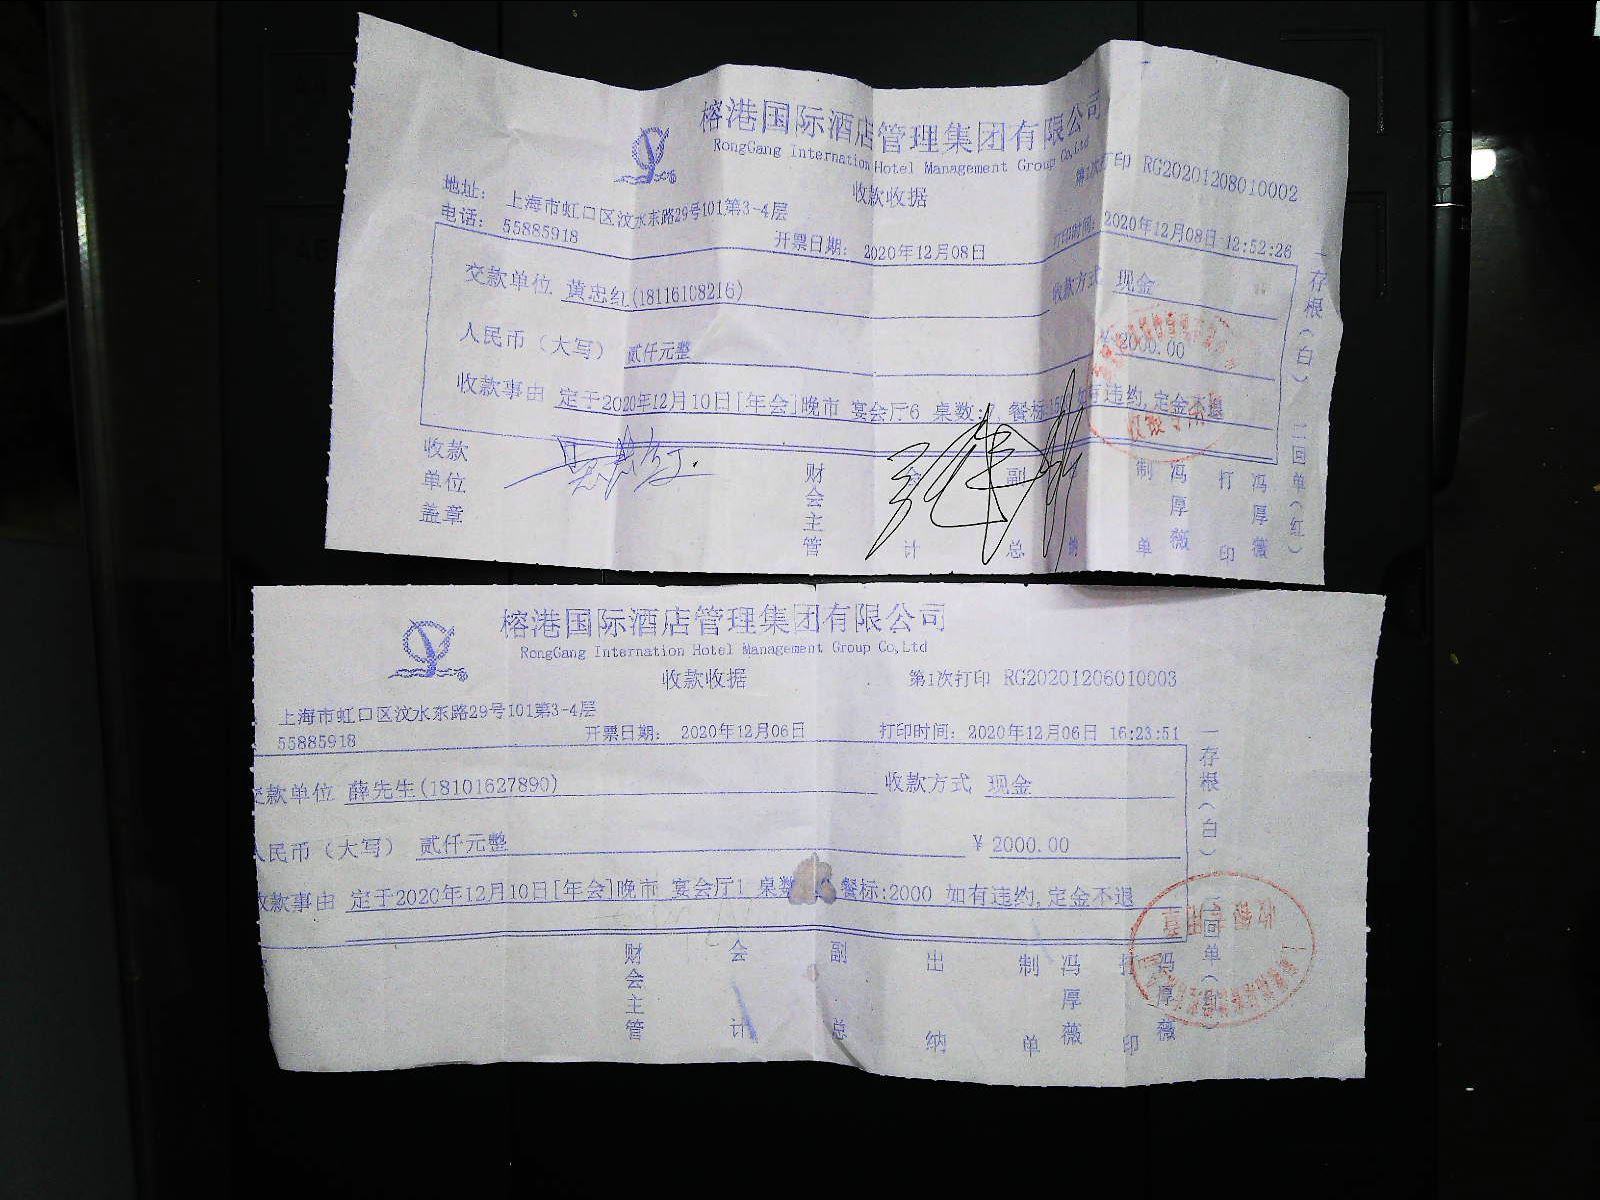 榕港国际酒店管理集团有限公司
RongGang Internation Hotel Management Group Co,Ltd
收款收据
第1次打印 RG20201208010002
地址: 上海市虹口区汶水东路29号101第3-4层
电话: 55885918
开票日期: 2020年12月08日
打印时间: 2020年12月08日 12:52:26
交款单位 黄忠红(18116108216)
收款方式 现金
人民币(大写) 贰仟元整
¥ 2000.00
收款事由 定于2020年12月10日[年会]晚市 宴会厅6 桌数: 餐标: 如有违约,定金不退
收款单位盖章
财会主管
会计
副总
纳
制单
冯厚薇
打印
冯厚薇
一存根(白)
二回单(红)
榕港国际酒店管理集团有限公司
RongGang Internation Hotel Management Group Co,Ltd
收款收据
第1次打印 RG20201206010003
上海市虹口区汶水东路29号101第3-4层
55885918
开票日期: 2020年12月06日
打印时间: 2020年12月06日 16:23:51
交款单位 薛先生(18101627890)
收款方式 现金
人民币(大写) 贰仟元整
¥ 2000.00
收款事由 定于2020年12月10日[年会]晚市 宴会厅1 桌数 餐标:2000 如有违约,定金不退
财会主管
会计
副总
出纳
制单
冯厚薇
打印
冯厚薇
一存根(白)
二回单(红)